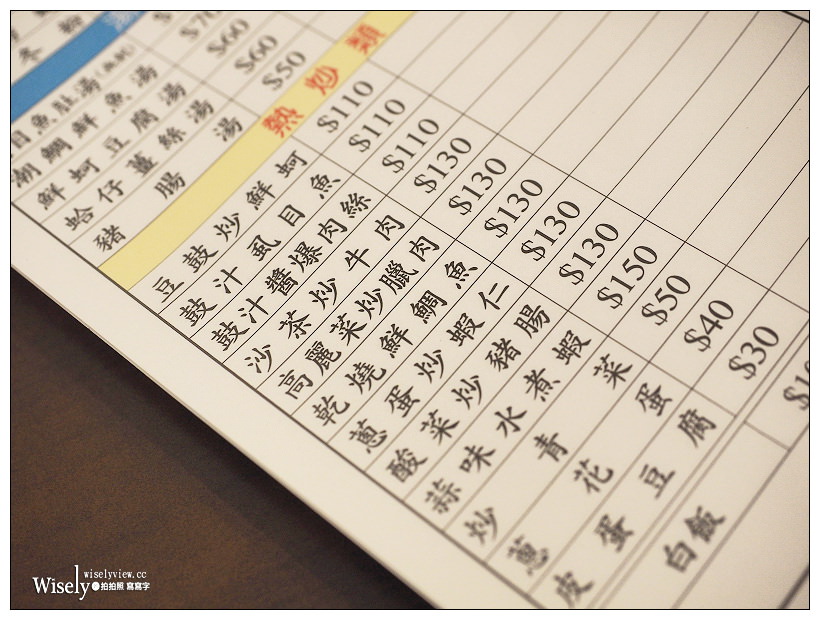 目魚肚湯(無刺)
潮鯛鮮魚湯 $70
鮮蚵豆腐湯 $60
蛤仔薑絲湯 $60
豬腸湯 $50
熱炒類
豆鼓炒鮮蚵 $110
鼓汁虱目魚 $110
鼓汁醬爆肉絲 $110
沙茶炒牛肉 $130
高麗菜炒臘肉 $130
乾燒鮮鯛魚 $130
蔥蛋炒蝦仁 $130
酸菜炒豬腸 $130
蒜味水煮蝦 $150
炒青菜 $50
蔥花蛋 $40
皮蛋豆腐 $30
白飯
Wisely wiselyview.cc
拍拍照 寫寫字